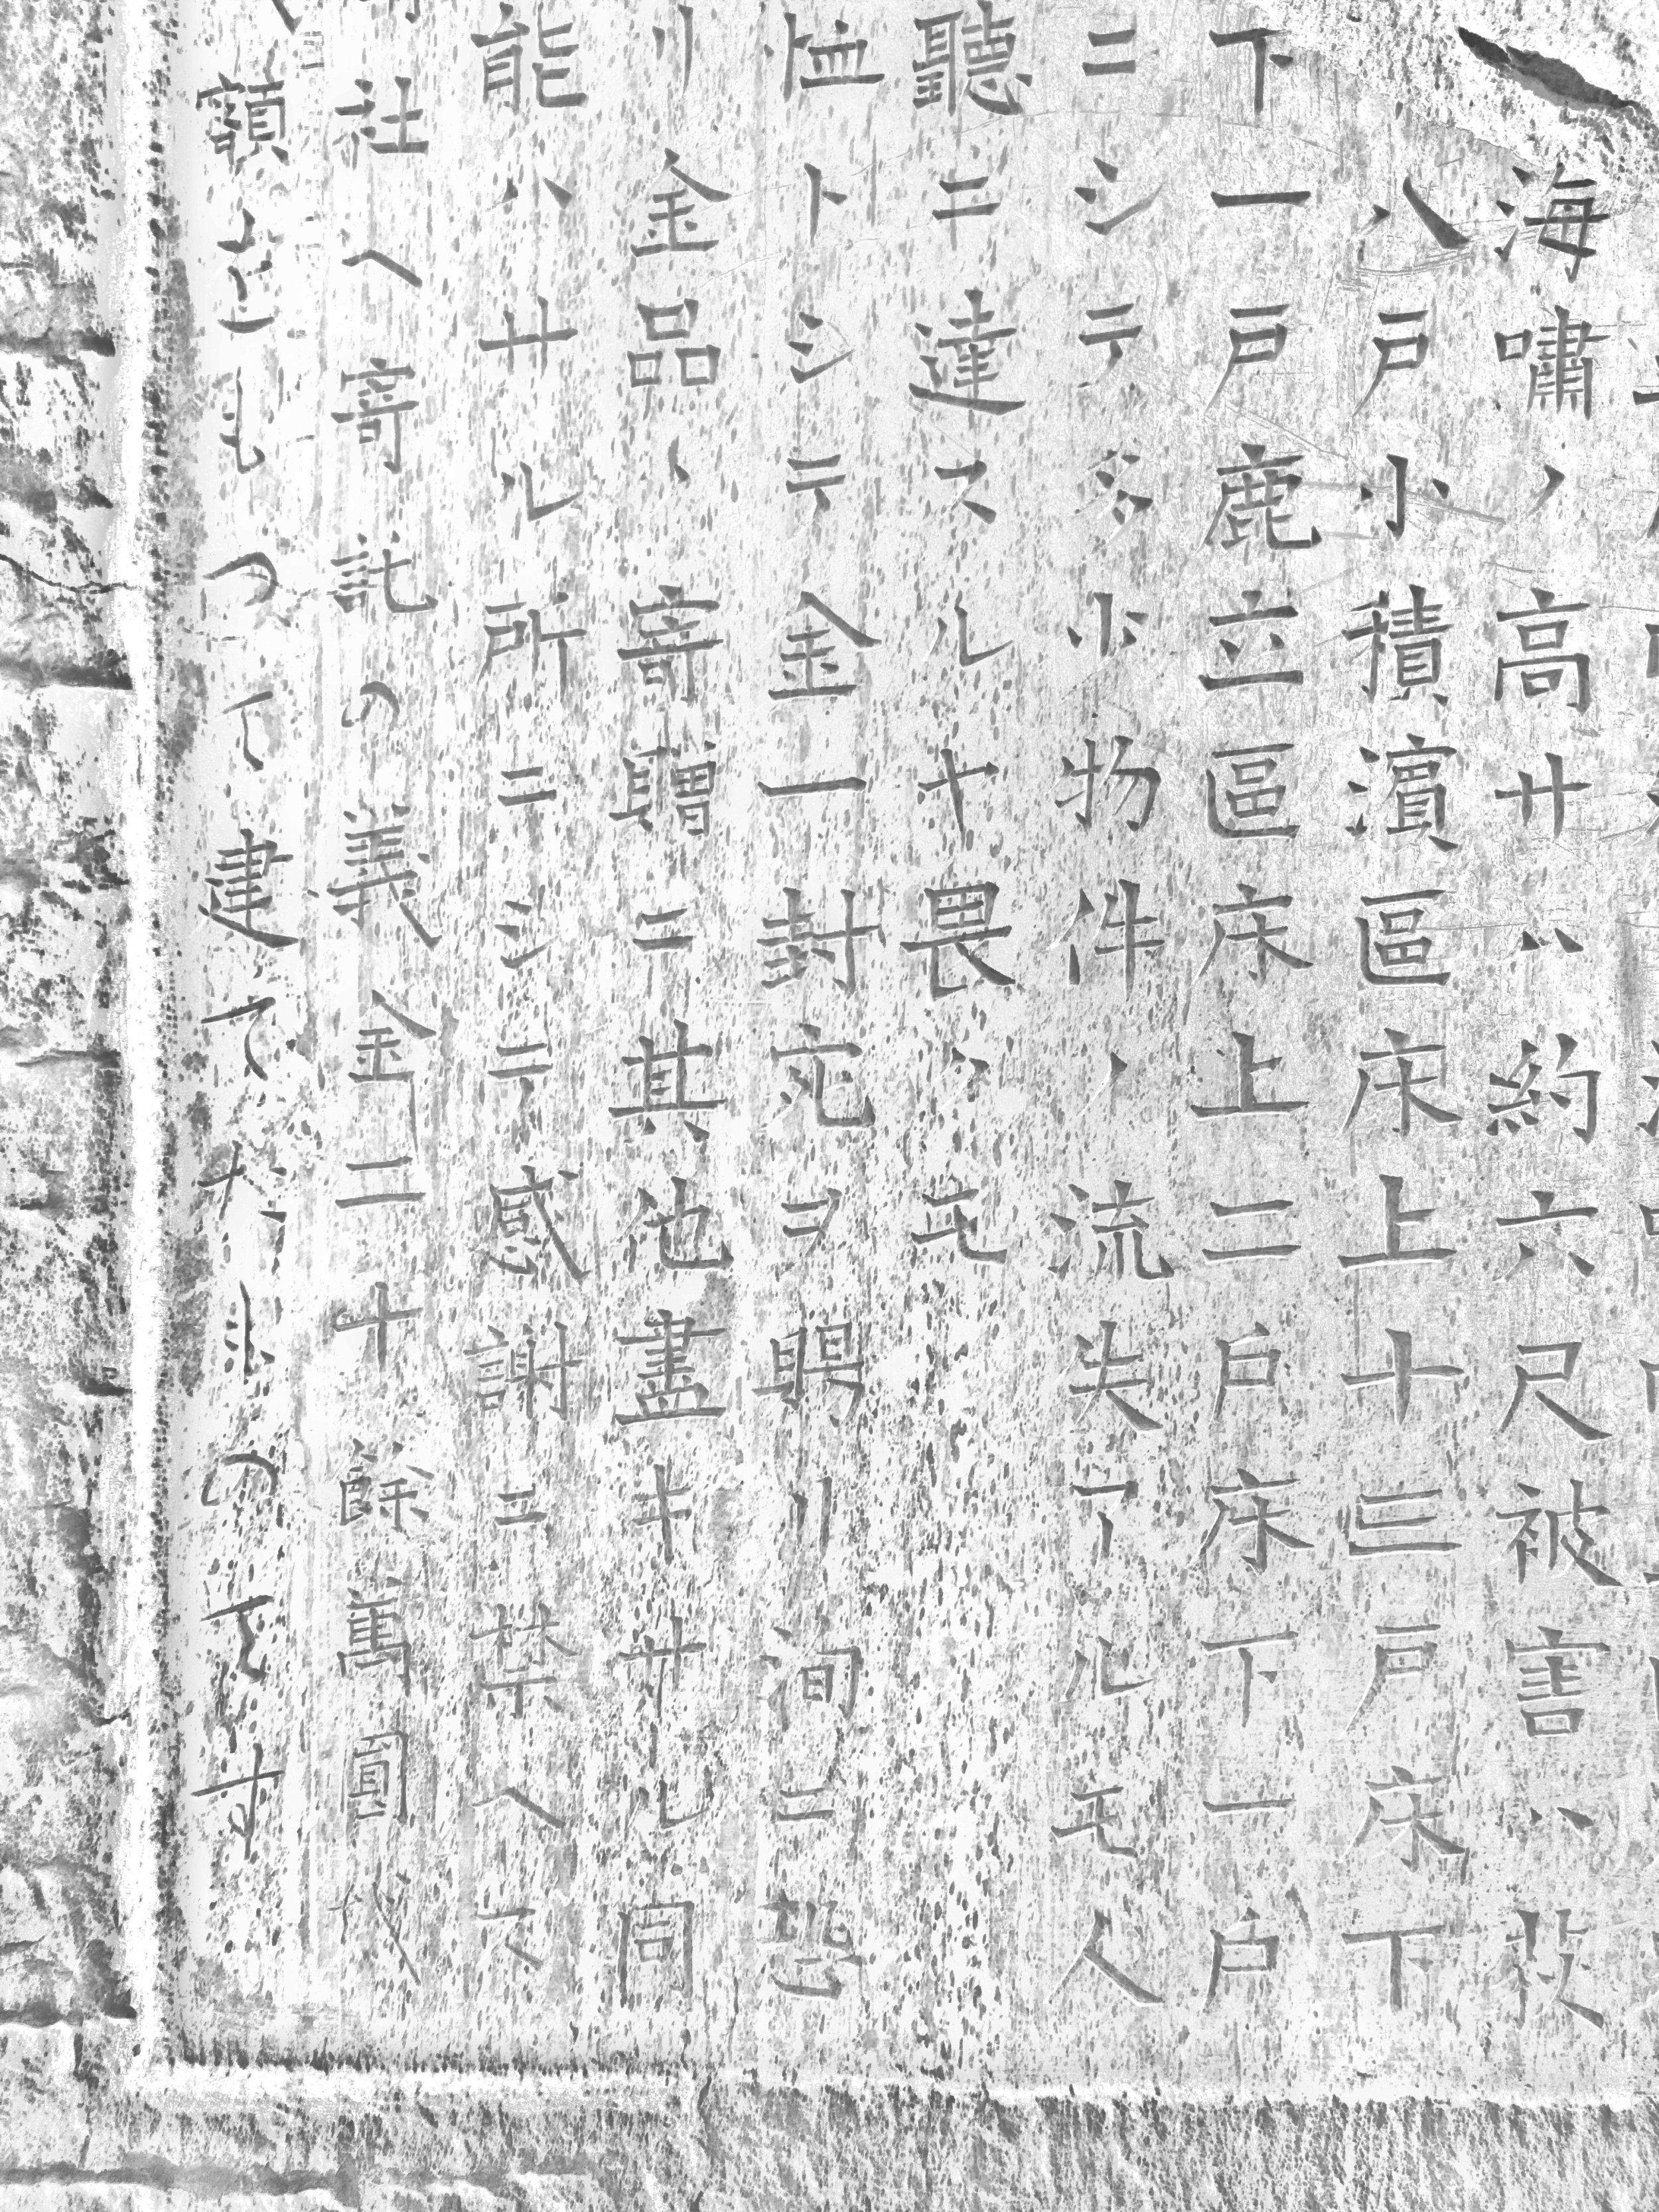 海嘯ノ高サハ約六尺被害ハ救
八戸小積濱區床上十三戸床下
下一戸鹿立區床上二戸床下一戸
ニシテ多少物件ノ流失アルモ人
聽ニ達スルヤ畏クモ
恤トシテ金一封宛ヲ賜リ洵ニ恐
リ金品ヽ寄贈ニ其他盡キサル同
能ハサル所ニシテ感謝ニ禁ヘス
社へ寄託の義金二十餘萬圓
額をもつて建てたものです